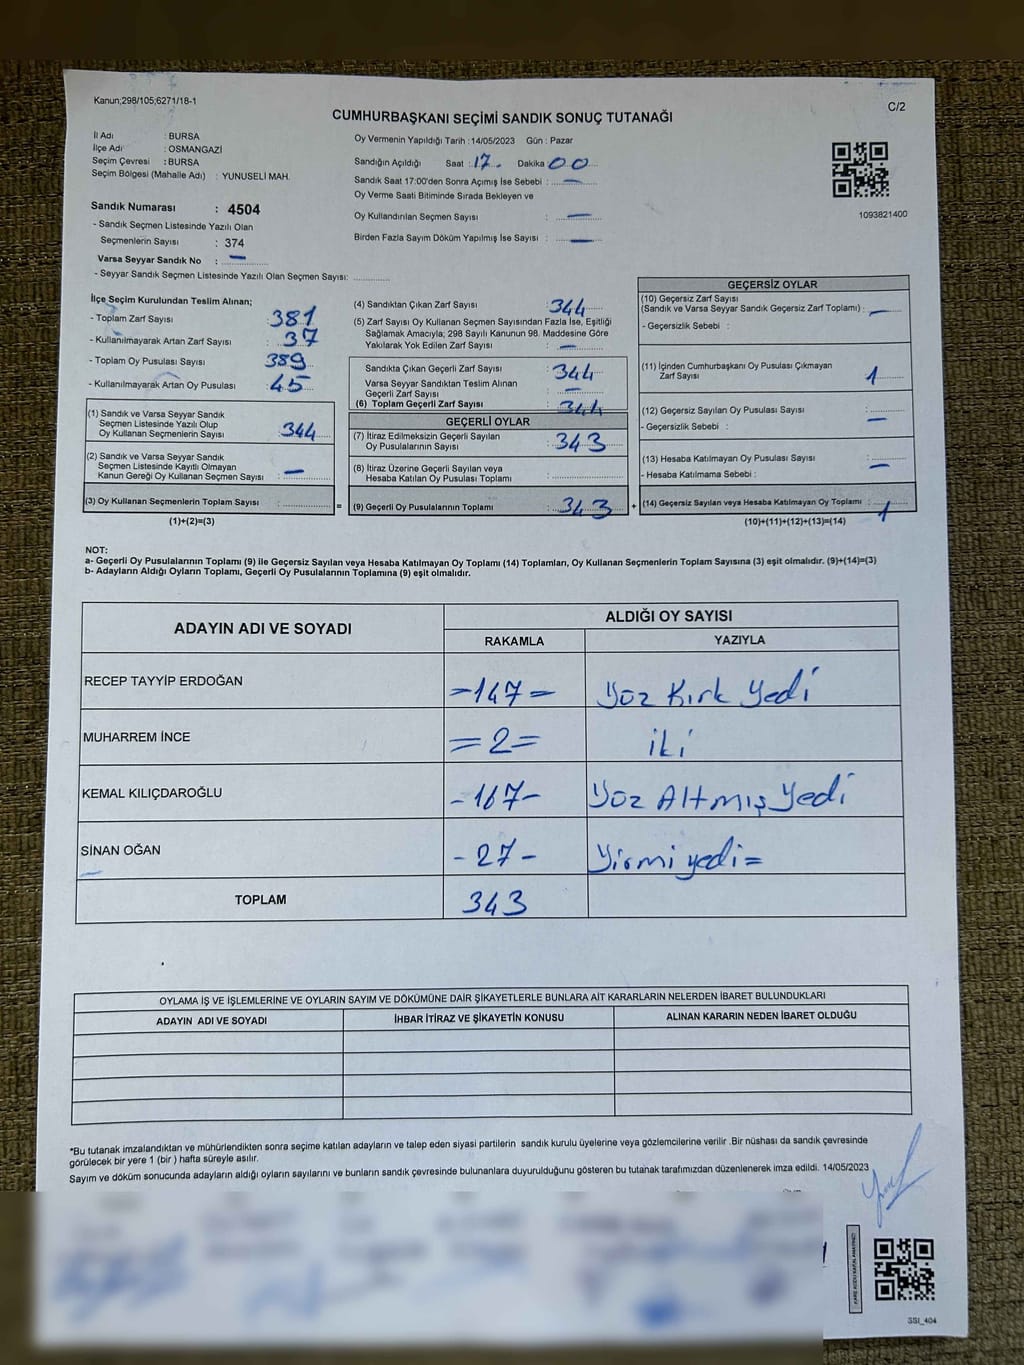 Kanun;298/105;6271/18-1
C/2
CUMHURBAŞKANI SEÇİMİ SANDIK SONUÇ TUTANAĞI
İl Adı : BURSA
İlçe Adı : OSMANGAZİ
Seçim Çevresi : BURSA
Seçim Bölgesi (Mahalle Adı) : YUNUSELİ MAH.
Sandık Numarası : 4504
- Sandık Seçmen Listesinde Yazılı Olan
Seçmenlerin Sayısı : 374
Varsa Seyyar Sandık No : —
- Seyyar Sandık Seçmen Listesinde Yazılı Olan Seçmen Sayısı:
Oy Vermenin Yapıldığı Tarih :14/05/2023 Gün : Pazar
Sandığın Açıldığı Saat : 17. Dakika 00
Sandık Saat 17:00'den Sonra Açımış İse Sebebi : —
Oy Verme Saati Bitiminde Sırada Bekleyen ve
Oy Kullandırılan Seçmen Sayısı : —
Birden Fazla Sayım Döküm Yapılmış İse Sayısı : —
1093821400
İlçe Seçim Kurulundan Teslim Alınan;
- Toplam Zarf Sayısı : 381
- Kullanılmayarak Artan Zarf Sayısı : 37
- Toplam Oy Pusulası Sayısı : 389
- Kullanılmayarak Artan Oy Pusulası : 45
(1) Sandık ve Varsa Seyyar Sandık
Seçmen Listesinde Yazılı Olup
Oy Kullanan Seçmenlerin Sayısı : 344
(2) Sandık ve Varsa Seyyar Sandık
Seçmen Listesinde Kayıtlı Olmayan
Kanun Gereği Oy Kullanan Seçmen Sayısı : —
(3) Oy Kullanan Seçmenlerin Toplam Sayısı :
(1)+(2)=(3)
(4) Sandıktan Çıkan Zarf Sayısı : 344
(5) Zarf Sayısı Oy Kullanan Seçmen Sayısından Fazla İse, Eşitliği
Sağlamak Amacıyla; 298 Sayılı Kanunun 98. Maddesine Göre
Yakılarak Yok Edilen Zarf Sayısı : —
Sandıkta Çıkan Geçerli Zarf Sayısı : 344
Varsa Seyyar Sandıktan Teslim Alınan
Geçerli Zarf Sayısı : —
(6) Toplam Geçerli Zarf Sayısı : 344
GEÇERLİ OYLAR
(7) İtiraz Edilmeksizin Geçerli Sayılan
Oy Pusulalarının Sayısı : 343
(8) İtiraz Üzerine Geçerli Sayılan veya
Hesaba Katılan Oy Pusulası Toplamı :
= (9) Geçerli Oy Pusulalarının Toplamı : 343 +
GEÇERSİZ OYLAR
(10) Geçersiz Zarf Sayısı
(Sandık ve Varsa Seyyar Sandık Geçersiz Zarf Toplamı) : —
- Geçersizlik Sebebi :
(11) İçinden Cumhurbaşkanı Oy Pusulası Çıkmayan
Zarf Sayısı : 1
(12) Geçersiz Sayılan Oy Pusulası Sayısı : —
- Geçersizlik Sebebi :
(13) Hesaba Katılmayan Oy Pusulası Sayısı : —
- Hesaba Katılmama Sebebi :
(14) Geçersiz Sayılan veya Hesaba Katılmayan Oy Toplamı : 1
(10)+(11)+(12)+(13)=(14)
NOT:
a- Geçerli Oy Pusulalarının Toplamı (9) ile Geçersiz Sayılan veya Hesaba Katılmayan Oy Toplamı (14) Toplamları, Oy Kullanan Seçmenlerin Toplam Sayısına (3) eşit olmalıdır. (9)+(14)=(3)
b- Adayların Aldığı Oyların Toplamı, Geçerli Oy Pusulalarının Toplamına (9) eşit olmalıdır.
ADAYIN ADI VE SOYADI
ALDIĞI OY SAYISI
RAKAMLA YAZIYLA
RECEP TAYYİP ERDOĞAN -147- Yüz Kırk Yedi
MUHARREM İNCE =2= iki
KEMAL KILIÇDAROĞLU -167- Yüz Altmış Yedi
SİNAN OĞAN -27- Yirmi yedi=
TOPLAM 343
OYLAMA İŞ VE İŞLEMLERİNE VE OYLARIN SAYIM VE DÖKÜMÜNE DAİR ŞİKAYETLERLE BUNLARA AİT KARARLARIN NELERDEN İBARET BULUNDUKLARI
ADAYIN ADI VE SOYADI İHBAR İTİRAZ VE ŞİKAYETİN KONUSU ALINAN KARARIN NEDEN İBARET OLDUĞU
*Bu tutanak imzalandıktan ve mühürlendikten sonra seçime katılan adayların ve talep eden siyasi partilerin sandık kurulu üyelerine veya gözlemcilerine verilir .Bir nüshası da sandık çevresinde
görülecek bir yere 1 (bir ) hafta süreyle asılır.
Sayım ve döküm sonucunda adayların aldığı oyların sayılarını ve bunların sandık çevresinde bulunanlara duyurulduğunu gösteren bu tutanak tarafımızdan düzenlenerek imza edildi. 14/05/2023
SSI_404